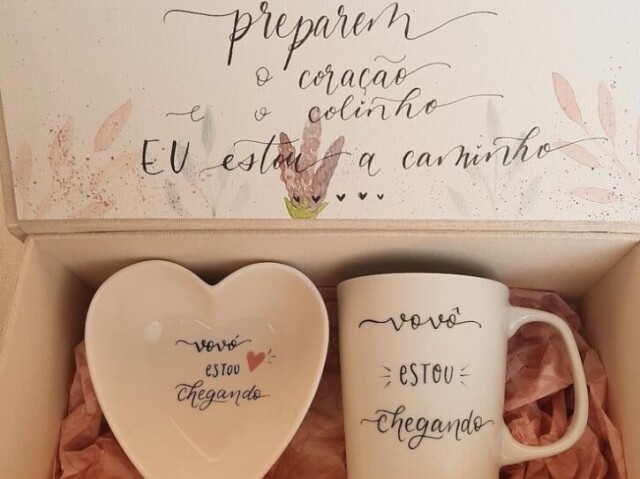 preparem
o coração
e o colinho
EU estou a caminho
vovó
ESTOU
chegando
vovô
ESTOU
chegando